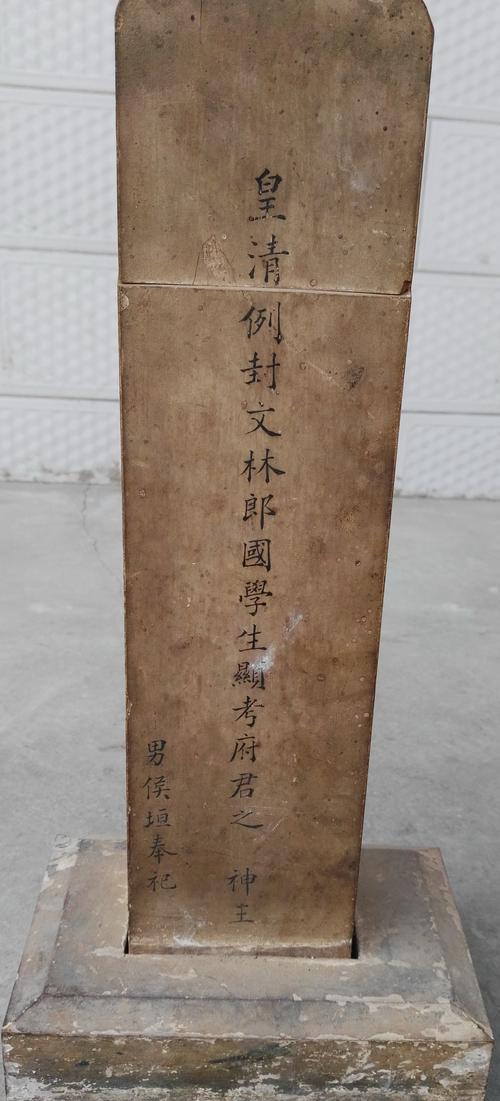 皇清例封文林郎國學生顯考府君之 神主
男侯垣奉祀